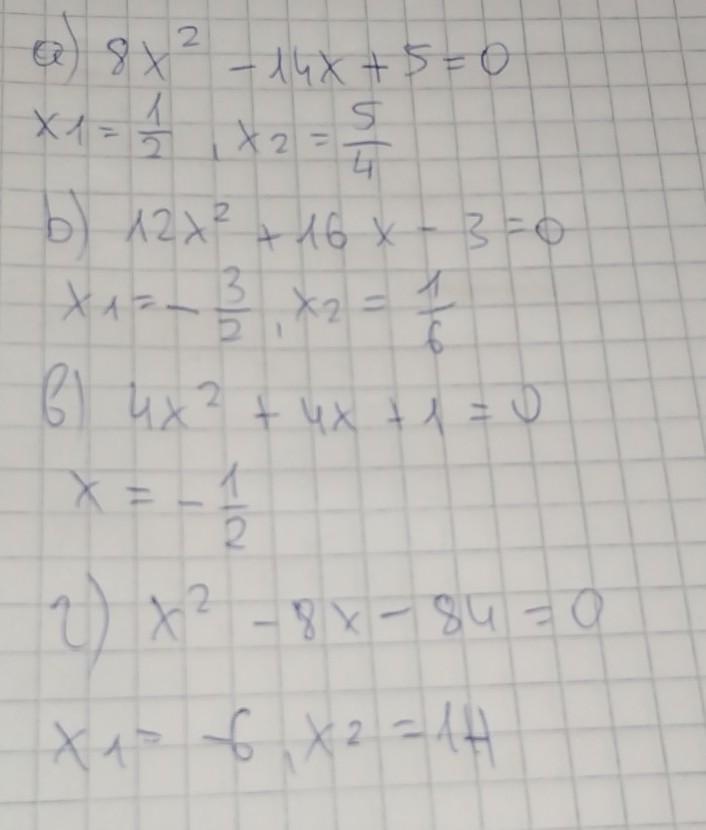 а) 8x² - 14x + 5 = 0
x1 = 1/2, x2 = 5/4
b) 12x² + 16x - 3 = 0
x1 = - 3/2, x2 = 1/6
в) 4x² + 4x + 1 = 0
x = - 1/2
г) x² - 8x - 84 = 0
x1 = -6, x2 = 14